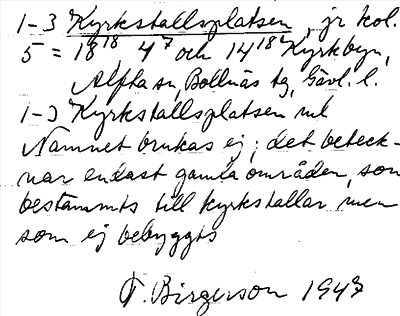 1-3 Kyrkstallsplatsen, jr kol.
5 = 18¹⁸ 4⁷ och 14¹⁸² Kyrkbyn,
Alfta sn, Bollnäs tg, Gävl. l.
1-3 Kyrkstallsplatsen
Namnet brukas ej; det beteck-
nar endast gamla områden, som
bestämmts till kyrkstallar men
som ej bebyggts
T. Birgerson 1943